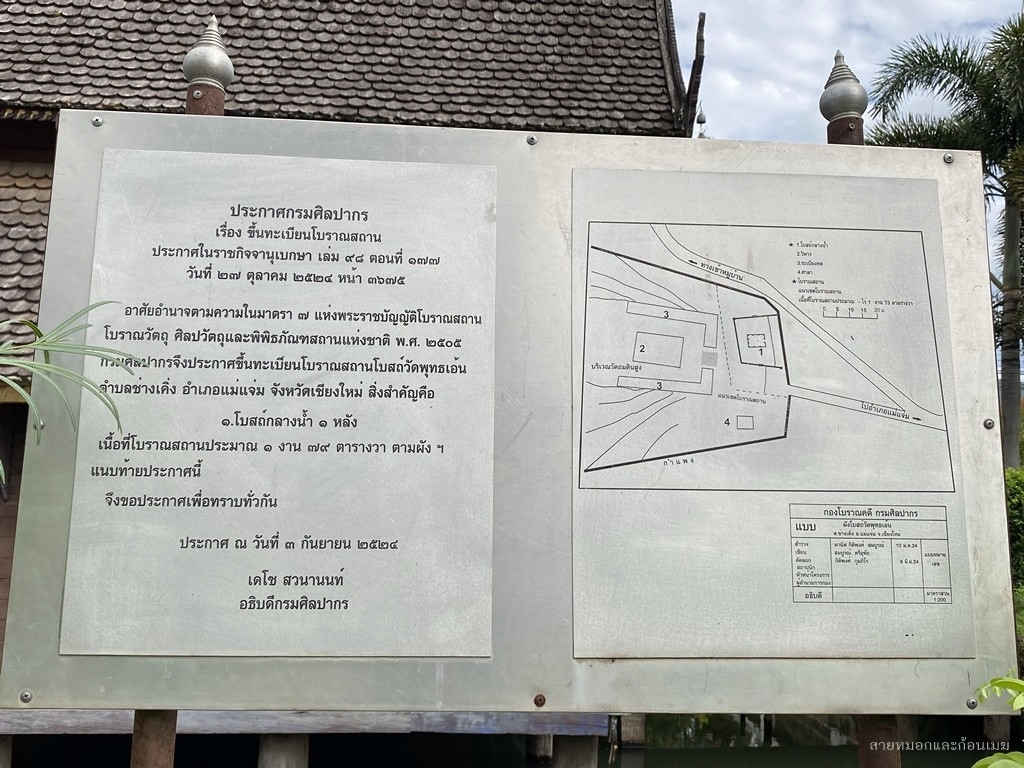 ประกาศกรมศิลปากร
เรื่อง ขึ้นทะเบียนโบราณสถาน
ประกาศในราชกิจจานุเบกษา เล่ม ๙๘ ตอนที่ ๑๗๗
วันที่ ๒๗ ตุลาคม ๒๕๒๔ หน้า ๓๖๗๕
อาศัยอำนาจตามความในมาตรา ๗ แห่งพระราชบัญญัติโบราณสถาน
โบราณวัตถุ ศิลปวัตถุและพิพิธภัณฑสถานแห่งชาติ พ.ศ. ๒๕๐๕
กรมศิลปากรจึงประกาศขึ้นทะเบียนโบราณสถานโบสถ์วัดพุทธเอ้น
ตำบลช่างเคิ่ง อำเภอแม่แจ่ม จังหวัดเชียงใหม่ สิ่งสำคัญคือ
๑.โบสถ์กลางน้ำ ๑ หลัง
เนื้อที่โบราณสถานประมาณ ๑ งาน ๗๙ ตารางวา ตามผัง ฯ
แนบท้ายประกาศนี้
จึงขอประกาศเพื่อทราบทั่วกัน
ประกาศ ณ วันที่ ๓ กันยายน ๒๕๒๔
เดโช สวนานนท์
อธิบดีกรมศิลปากร
★ 1.โบสถ์กลางน้ำ
2.วิหาร
3.ระเบียงคด
4.ศาลา
★ โบราณสถาน
แนวเขตโบราณสถาน
เนื้อที่โบราณสถานประมาณ - ไร่ 1 งาน 73 ตารางวา
0 5 10 15 20 ม.
ทางเข้าหมู่บ้าน
3
2
1
บริเวณวัดถมดินสูง
3
แนวเขตโบราณสถาน
ไปอำเภอแม่แจ่ม
4
กำแพง
กองโบราณคดี กรมศิลปากร
แบบ
ผังโบสถ์วัดพุทธเอ้น
ต.ช่างเคิ่ง อ.แม่แจ่ม จ.เชียงใหม่
สำรวจ
เขียน
คัดลอก
สถาปนิก
หัวหน้าโครงการ
ผู้อำนวยการกอง
10 ม.ค.24
แบบหมายเลข
อธิบดี
มาตราส่วน
1:200
สายหมอกและก้อนเมฆ